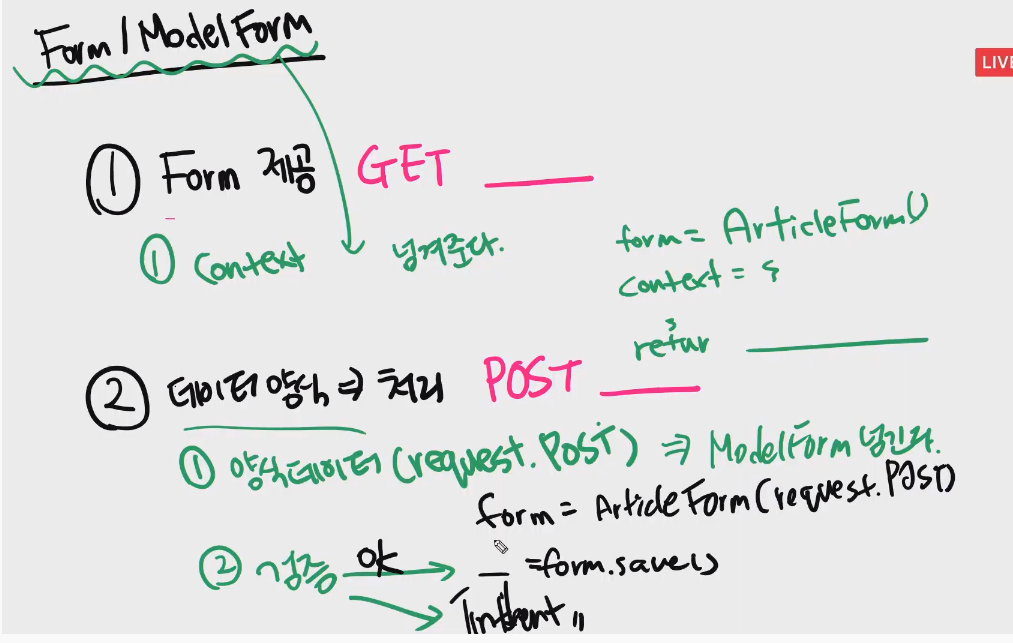 Form / ModelForm
LIVE
① Form 제공 GET
① Context 넘겨준다.
form = ArticleForm()
context = {
}
retur
② 데이터 양식 ⇒ 처리 POST
① 양식데이터 (request.POST) ⇒ ModelForm 넘긴다.
form = ArticleForm(request.POST)
② 검증 ok = form.save()